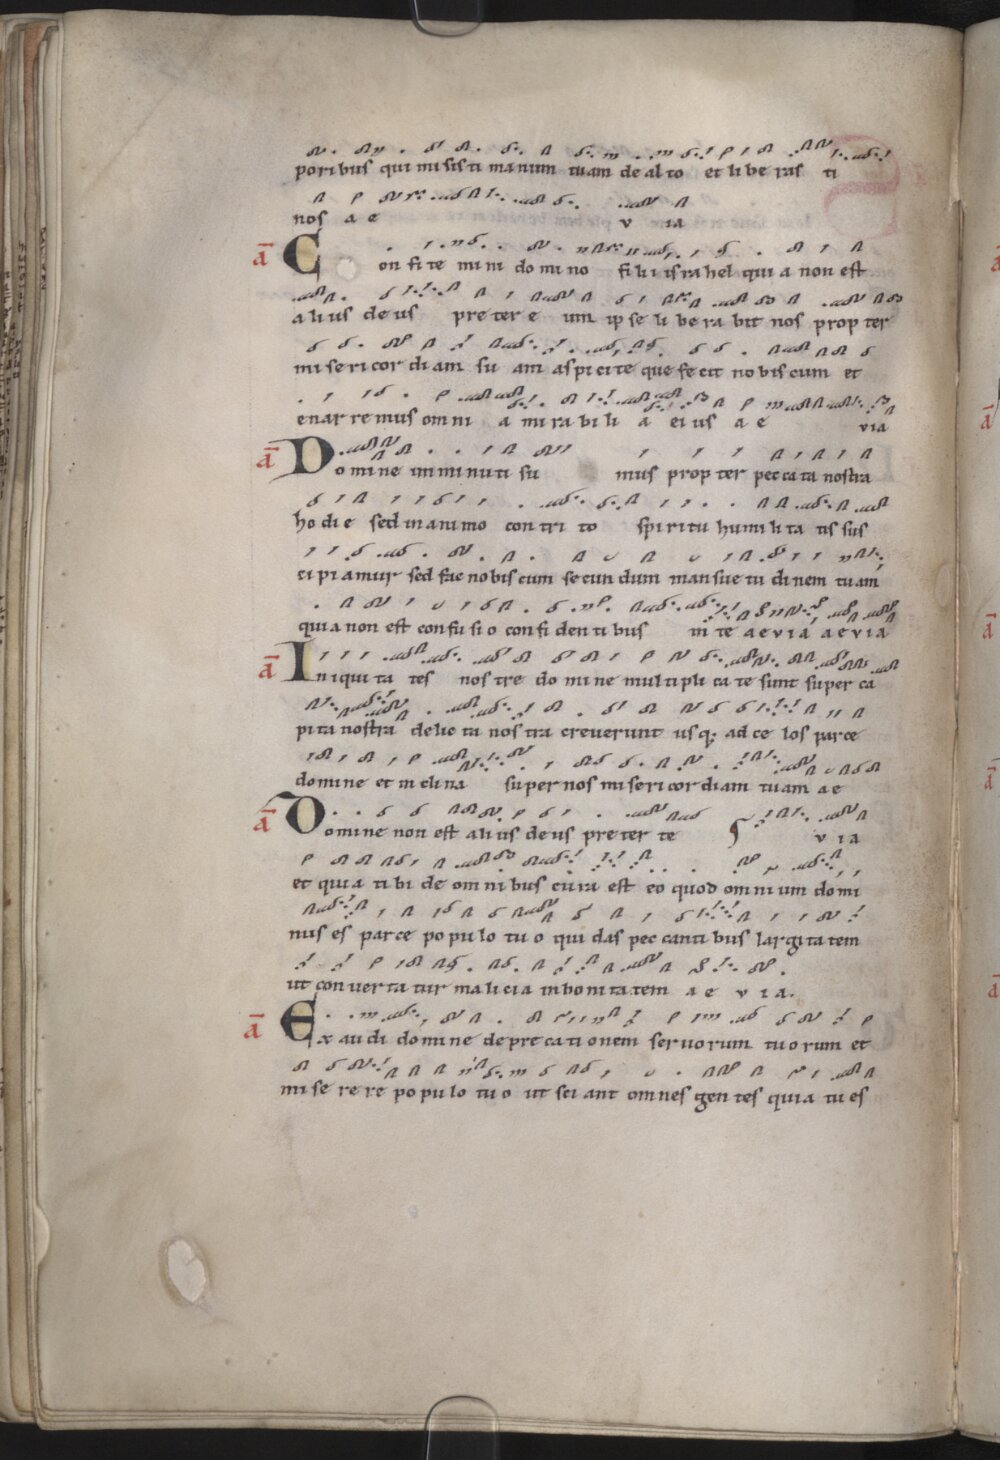 poribus qui misisti manum tuam de alto et liberas ti
nos a e v ia
ā Confitemini domino filii israhel quia non est
alius deus preter eum ipse liberabit nos propter
misericordiam suam aspicite que fecit nobiscum et
enarremus omni a mirabili a eius a e via
ā Domine imminuti sumus propter peccata nostra
hodie sed in animo contrito spiritu humilitatis sus
cipiamur sed fac nobiscum secundum mansuetudinem tuam
quia non est confusio confidentibus in te aevia aevia
ā Iniquitates nostre domine multiplicate sunt super ca
pita nostra delicta nostra creverunt usq; ad celos parce
domine et inclina super nos misericordiam tuam a e
ā Domine non est alius deus preter te v i a
et quia tibi de omnibus cura est eo quod omnium domi
nus es parce populo tuo qui das peccantibus largitatem
ut convertatur malicia in bonitatem a e v i a.
ā Exaudi domine deprecationem servorum tuorum et
miserere populo tuo ut sciant omnes gentes quia tu es